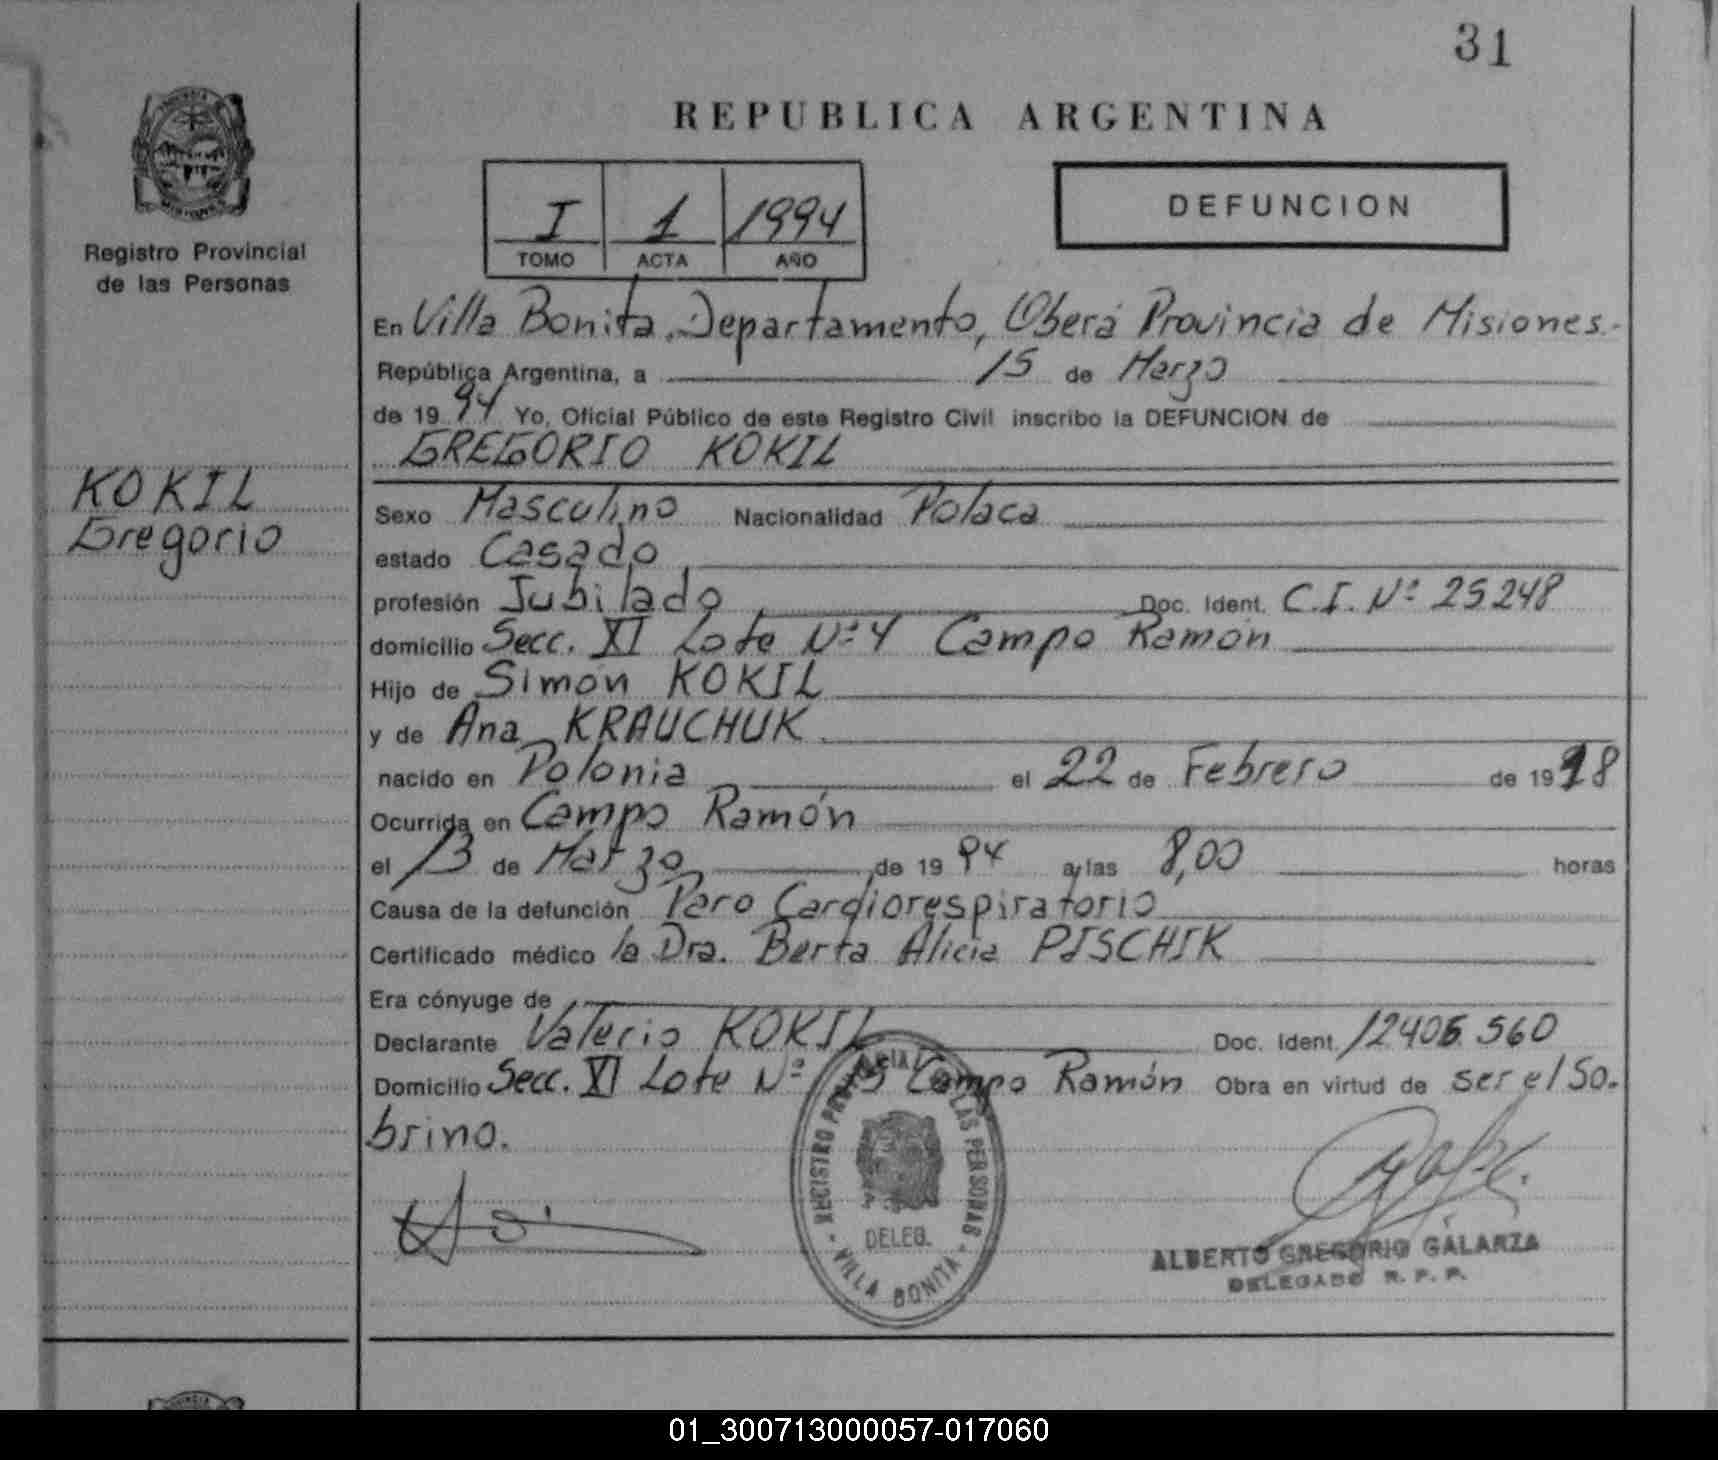 31
REPUBLICA ARGENTINA
I 1 1994
TOMO ACTA AÑO
DEFUNCION
Registro Provincial
de las Personas
KOKIL
Gregorio
En Villa Bonita, Departamento, Oberá Provincia de Misiones.-
República Argentina, a 15 de Marzo
de 1994 Yo, Oficial Público de este Registro Civil inscribo la DEFUNCION de
GREGORIO KOKIL
Sexo Masculino Nacionalidad Polaca
estado Casado
profesión Jubilado Doc. Ident. C.I. Nº 25248
domicilio Secc. XI Lote Nº 4 Campo Ramón
Hijo de Simón KOKIL
y de Ana KRAUCHUK
nacido en Polonia el 22 de Febrero de 1918
Ocurrida en Campo Ramón
el 13 de Marzo de 1994 a las 8,00 horas
Causa de la defunción Paro Cardiorespiratorio
Certificado médico la Dra. Berta Alicia PISCHIK
Era cónyuge de
Declarante Valerio KOKIL Doc. Ident. 12406.560
Domicilio Secc. XI Lote Nº Campo Ramón Obra en virtud de ser el So-
brino.
REGISTRO PROVINCIAL DE LAS PERSONAS
DELEG.
- VILLA BONITA -
ALBERTO GREGORIO GALARZA
DELEGADO R. P. P.
01_300713000057-017060